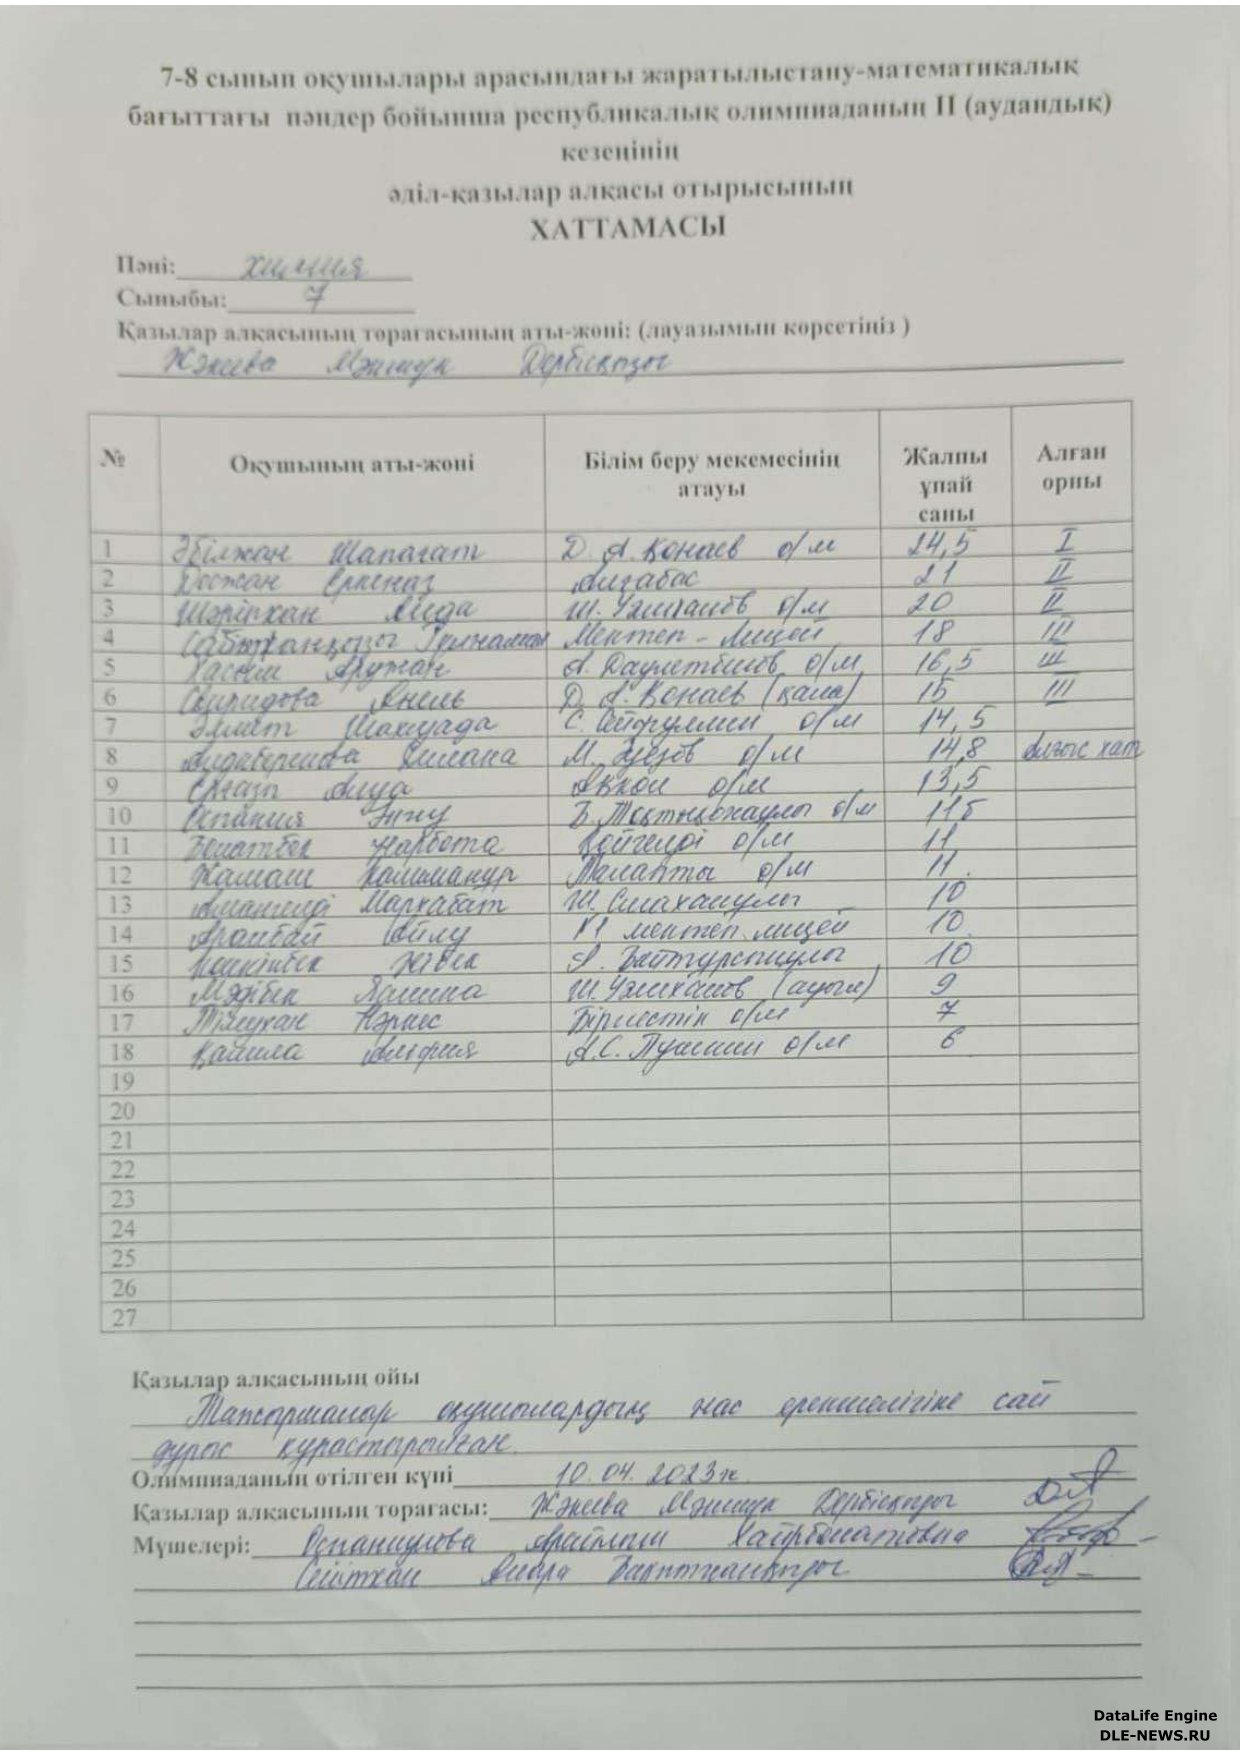 7-8 сынып оқушылары арасындағы жаратылыстану-математикалық
бағыттағы пәндер бойынша республикалық олимпиаданың II (аудандық)
кезеңінің
әділ-қазылар алқасы отырысының
ХАТТАМАСЫ
Пәні: химия
Сыныбы: 7
Қазылар алқасының төрағасының аты-жөні: (лауазымын көрсетіңіз )
Жәкева Мәншүк Дербісқызы
№ Оқушының аты-жөні Білім беру мекемесінің атауы Жалпы ұпай саны Алған орны
1 Әбілжан Шапағат Д. А. Қонаев о/м 24,5 I
2 Досжан Еркеназ Алғабас 21 II
3 Шәріпхан Аида Ш. Уәлиханов о/м 20 II
4 Мектеп-лицей 18 III
5 Хасым Аружан А. Дәулетбеков о/м 16,5 III
6 Свиридова Анель Д. А. Қонаев (қала) 15 III
7 Шахизада С. Сейфуллин о/м 14,5
8 М. Әуезов о/м 14,8 Алғыс хат
9 Аида Аккөл о/м 13,5
10 Оспания Інжу о/м 11
11 Болатбек Нарбота Қойгелді о/м 11
12 Жамаш Қалиманур Талапты о/м 11
13 Амангелді Мархабат Ш. Смаханұлы 10
14 Арапбай Айлу №1 мектеп лицей 10
15 Жібек А. Байтурсынулы 10
16 Мәдібек Ш. Уәлиханов (ауыл) 9
17 Нәркес Бірлестік о/м 7
18 Алфия А.С. Пушкин о/м 6
19
20
21
22
23
24
25
26
27
Қазылар алқасының ойы
Тапсырмалар оқушылардың жас ерекшелігіне сай
дұрыс құрастырылған.
Олимпиаданың өтілген күні 10.04.2023ж.
Қазылар алқасының төрағасы: Жәкева Мәншүк Дербісқызы
Мүшелері: Оспанкулова Арайлым Хайрболатовна
Сейтхан Анара Бакытжанқызы
DataLife Engine
DLE-NEWS.RU